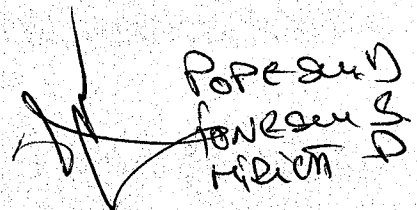 POPESCU D
IONESCU S
MIRICĂ D